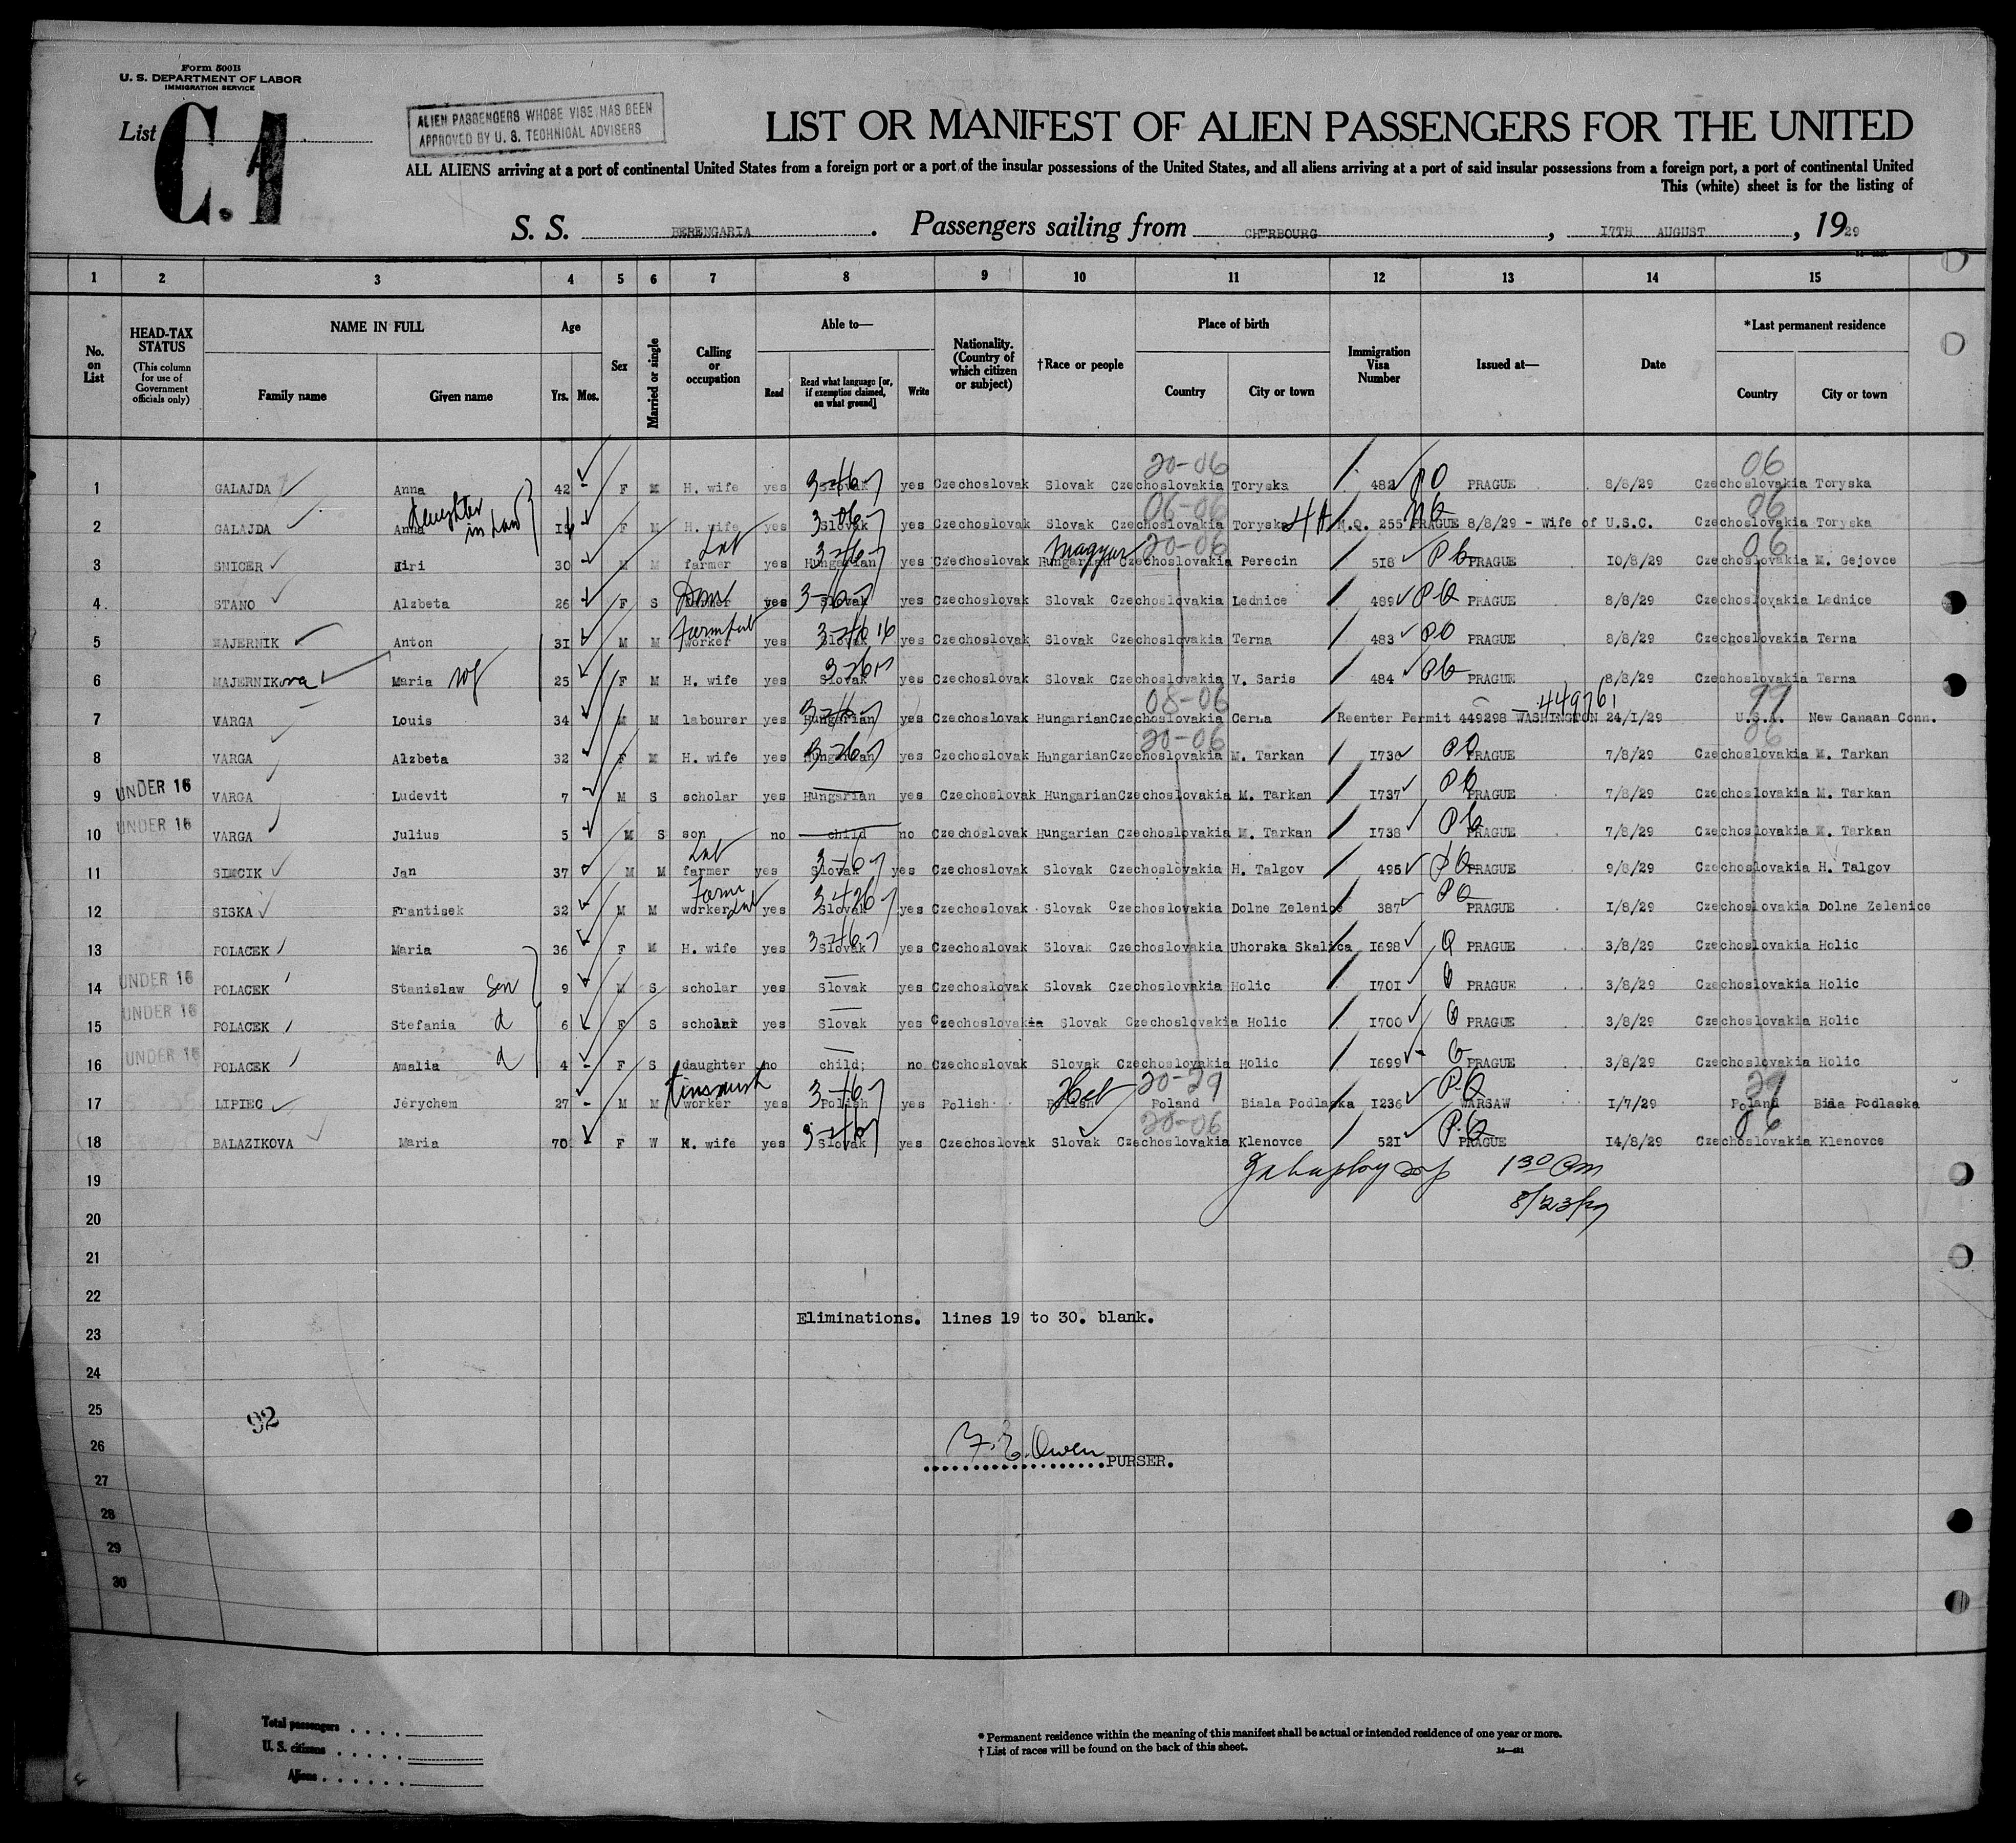 Form 500B
U. S. DEPARTMENT OF LABOR
IMMIGRATION SERVICE
List C. 1
ALIEN PASSENGERS WHOSE VISE HAS BEEN
APPROVED BY U. S. TECHNICAL ADVISERS
LIST OR MANIFEST OF ALIEN PASSENGERS FOR THE UNITED
ALL ALIENS arriving at a port of continental United States from a foreign port or a port of the insular possessions of the United States, and all aliens arriving at a port of said insular possessions from a foreign port, a port of continental United
This (white) sheet is for the listing of
S. S. BERENGARIA. Passengers sailing from CHERBOURG, 17TH AUGUST, 1929
1 2 3 4 5 6 7 8 9 10 11 12 13 14 15
No. on List
HEAD-TAX STATUS (This column for use of Government officials only)
NAME IN FULL Family name Given name
Age Yrs. Mos.
Sex
Married or single
Calling or occupation
Able to— Read Read what language [or, if exemption claimed, on what ground] Write
Nationality. (Country of which citizen or subject)
†Race or people
Place of birth Country City or town
Immigration Visa Number
Issued at—
Date
*Last permanent residence Country City or town
20-06 06
1 GALAJDA Anna 42 - F M H. wife yes Slovak yes Czechoslovak Slovak Czechoslovakia Toryska 482 PRAGUE 8/8/29 Czechoslovakia Toryska
daughter in law 06-06 06
2 GALAJDA Anna 15 F M H. wife yes Slovak yes Czechoslovak Slovak Czechoslovakia Toryska N.Q. 255 PRAGUE 8/8/29 - Wife of U.S.C. Czechoslovakia Toryska
Magyar 20-06 06
3 SNICER Jiri 30 - M M farmer yes Hungarian yes Czechoslovak Hungarian Czechoslovakia Perecin 518 PRAGUE 10/8/29 Czechoslovakia M. Gejovce
4 STANO Alzbeta 26 - F S yes Slovak yes Czechoslovak Slovak Czechoslovakia Lednice 489 PRAGUE 8/8/29 Czechoslovakia Lednice
5 MAJERNIK Anton 31 M M worker yes Slovak yes Czechoslovak Slovak Czechoslovakia Terna 483 PRAGUE 8/8/29 Czechoslovakia Terna
6 MAJERNIKova Maria 25 F M H. wife yes Slovak yes Czechoslovak Slovak Czechoslovakia V. Saris 484 PRAGUE 8/8/29 Czechoslovakia Terna
08-06 449761 99
7 VARGA Louis 34 M M labourer yes Hungarian yes Czechoslovak Hungarian Czechoslovakia Cerna Reenter Permit 449298 WASHINGTON 24/1/29 U.S.A. New Canaan Conn.
20-06 06
8 VARGA Alzbeta 32 F M H. wife yes Hungarian yes Czechoslovak Hungarian Czechoslovakia M. Tarkan 1736 PRAGUE 7/8/29 Czechoslovakia M. Tarkan
9 UNDER 16 VARGA Ludevit 7 M S scholar yes Hungarian yes Czechoslovak Hungarian Czechoslovakia M. Tarkan 1737 PRAGUE 7/8/29 Czechoslovakia M. Tarkan
10 UNDER 16 VARGA Julius 5 M S son no child no Czechoslovak Hungarian Czechoslovakia M. Tarkan 1738 PRAGUE 7/8/29 Czechoslovakia M. Tarkan
11 SIMCIK Jan 37 M M farmer yes Slovak yes Czechoslovak Slovak Czechoslovakia H. Talgov 495 PRAGUE 9/8/29 Czechoslovakia H. Talgov
12 SISKA Frantisek 32 M M worker yes Slovak yes Czechoslovak Slovak Czechoslovakia Dolne Zelenice 387 PRAGUE 1/8/29 Czechoslovakia Dolne Zelenice
13 POLACEK Maria 36 F M H. wife yes Slovak yes Czechoslovak Slovak Czechoslovakia Uhorska Skalica 1698 PRAGUE 3/8/29 Czechoslovakia Holic
14 UNDER 16 POLACEK Stanislaw Son 9 M S scholar yes Slovak yes Czechoslovak Slovak Czechoslovakia Holic 1701 PRAGUE 3/8/29 Czechoslovakia Holic
15 UNDER 16 POLACEK Stefania d 6 F S scholar yes Slovak yes Czechoslovakia Slovak Czechoslovakia Holic 1700 PRAGUE 3/8/29 Czechoslovakia Holic
16 UNDER 16 POLACEK Amalia d 4 - F S daughter no child; no Czechoslovak Slovak Czechoslovakia Holic 1699 PRAGUE 3/8/29 Czechoslovakia Holic
tinsmith Heb 20-29 29
17 LIPIEC Jerychem 27 - M M worker yes Polish yes Polish Polish Poland Biala Podlaska 1236 WARSAW 1/7/29 Poland Biala Podlaska
20-06 06
18 BALAZIKOVA Maria 70 - F W H. wife yes Slovak yes Czechoslovak Slovak Czechoslovakia Klenovce 521 PRAGUE 14/8/29 Czechoslovakia Klenovce
19 1 30 am
20 8/23/29
21
22
Eliminations. lines 19 to 30. blank.
23
24
25
92
26
F. E. Owen PURSER.
27
28
29
30
Total passengers
U. S. citizens
Aliens
* Permanent residence within the meaning of this manifest shall be actual or intended residence of one year or more.
† List of races will be found on the back of this sheet.